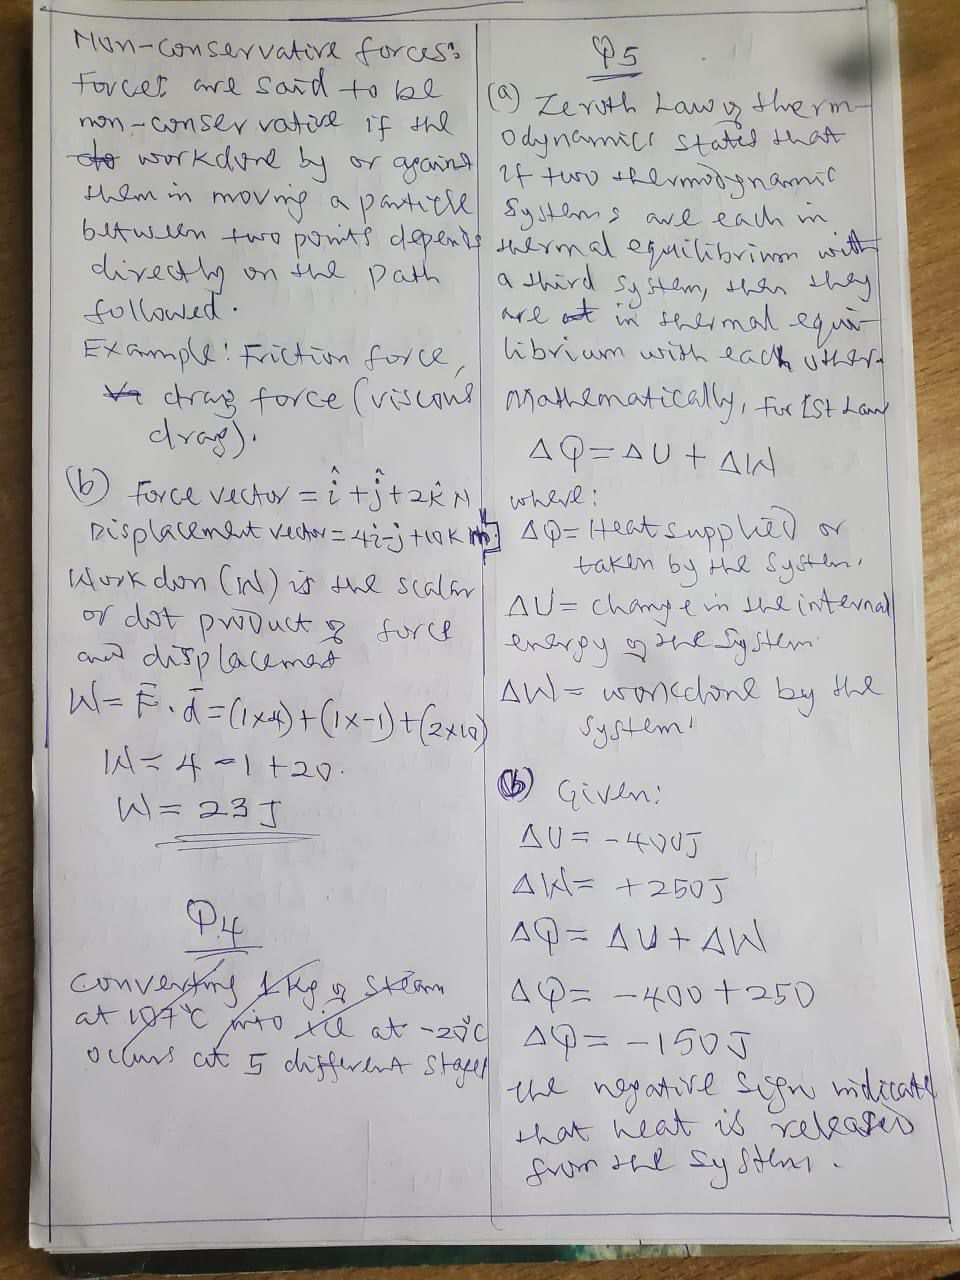 Non-conservative forces:
Forces are said to be
non-conservative if the
workdone by or against
them in moving a particle
between two points depends
directly on the path
followed.
Example: Friction force,
drag force (viscous
drag).
(b) Force vector = î + ĵ + 2k̂ N
Displacement vector = 4i - j + 10k m.
Work don (W) is the scalar
or dot product of force
and displacement
W = F̄ . d̄ = (1x4) + (1x-1) + (2x10)
W = 4 - 1 + 20.
W = 23J
Q4
Converting 1kg of steam
at 107°C into ice at -20°C
occurs at 5 different stages
Q5
(a) Zeroth Law of therm-
odynamics states that
if two thermodynamic
systems are each in
thermal equilibrium with
a third system, then they
are in thermal equi-
librium with each other.
Mathematically, for 1st Law
ΔQ = ΔU + ΔW
where:
ΔQ = Heat supplied or
taken by the system.
ΔU = change in the internal
energy of the system.
ΔW = workdone by the
system.
(b) Given:
ΔU = -400J
ΔW = +250J
ΔQ = ΔU + ΔW
ΔQ = -400 + 250
ΔQ = -150J
the negative sign indicate
that heat is released
from the system.